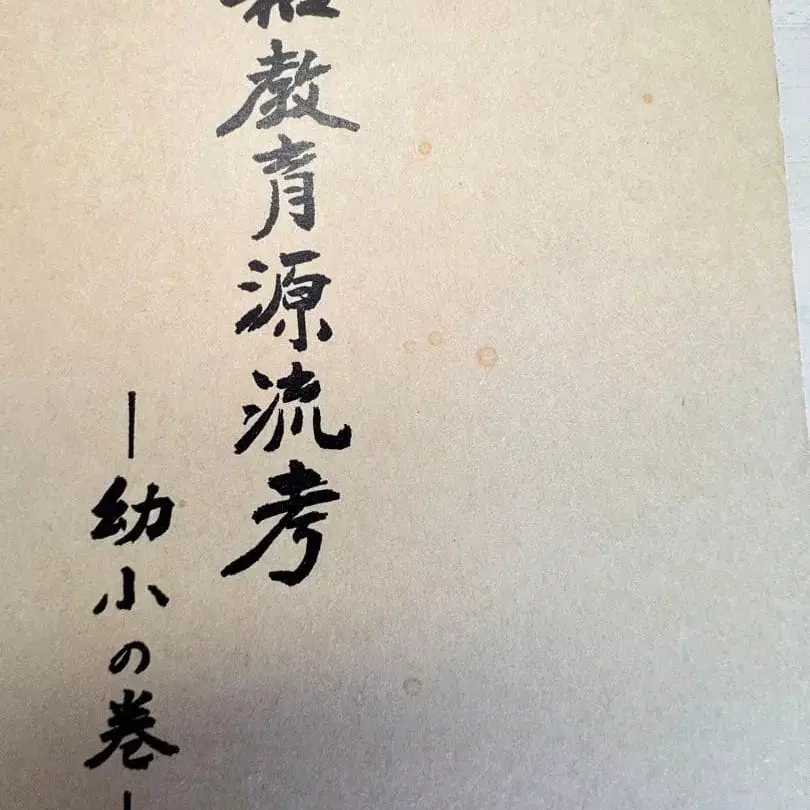 教育源流考
―幼小の巻―